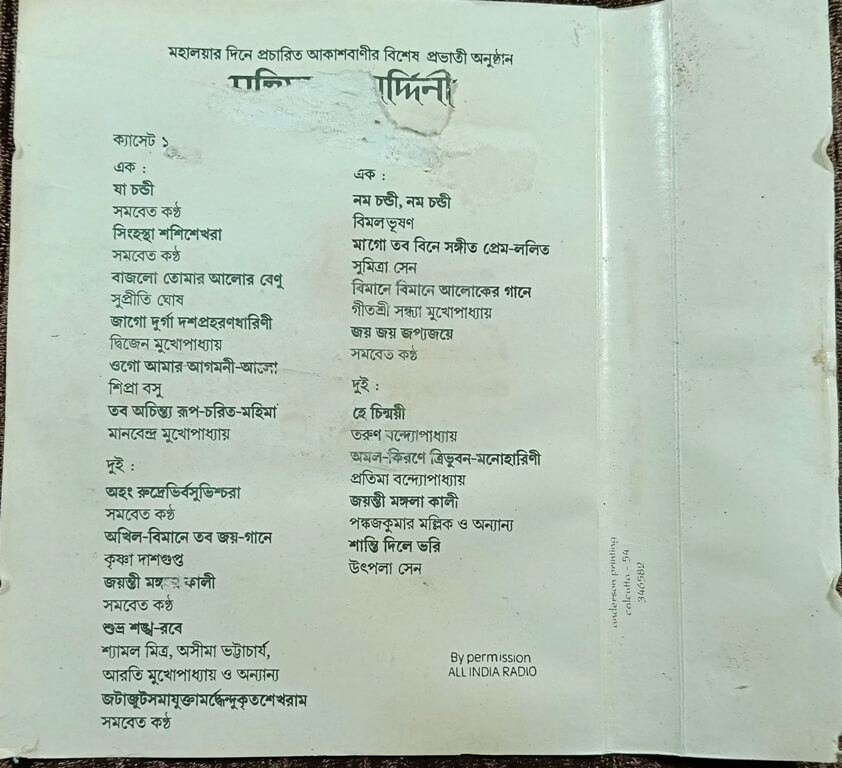 মহালয়ার দিনে প্রচারিত আকাশবাণীর বিশেষ প্রভাতী অনুষ্ঠান
ক্যাসেট ১
এক :
যা চন্ডী
সমবেত কণ্ঠ
সিংহস্থা শশিশেখরা
সমবেত কণ্ঠ
বাজলো তোমার আলোর বেণু
সুপ্রীতি ঘোষ
জাগো দুর্গা দশপ্রহরণধারিণী
দ্বিজেন মুখোপাধ্যায়
ওগো আমার আগমনী-আলো
শিপ্রা বসু
তব অচিন্ত্য রূপ-চরিত-মহিমা
মানবেন্দ্র মুখোপাধ্যায়
দুই :
অহং রুদ্রেভির্বসুভিশ্চরা
সমবেত কণ্ঠ
অখিল-বিমানে তব জয়-গানে
কৃষ্ণা দাশগুপ্ত
জয়ন্তী কালী
সমবেত কণ্ঠ
শুভ্র শঙ্খ-রবে
শ্যামল মিত্র, অসীমা ভট্টাচার্য,
আরতি মুখোপাধ্যায় ও অন্যান্য
জটাজুটসমাযুক্তামর্দ্ধেন্দুকৃতশেখরাম
সমবেত কণ্ঠ
এক :
নম চন্ডী, নম চন্ডী
বিমলভূষণ
মাগো তব বিনে সঙ্গীত প্রেম-ললিত
সুমিত্রা সেন
বিমানে বিমানে আলোকের গানে
গীতশ্রী সন্ধ্যা মুখোপাধ্যায়
জয় জয় জপ্যজয়ে
সমবেত কণ্ঠ
দুই :
হে চিন্ময়ী
তরুণ বন্দ্যোপাধ্যায়
অমল-কিরণে ত্রিভুবন-মনোহারিণী
প্রতিমা বন্দ্যোপাধ্যায়
জয়ন্তী মঙ্গলা কালী
পঙ্কজকুমার মল্লিক ও অন্যান্য
শান্তি দিলে ভরি
উৎপলা সেন
By permission
ALL INDIA RADIO
anderson printing
calcutta - 54
346582